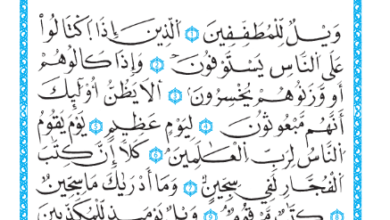 وَيْلٌ لِّلْمُطَفِّفِينَ ۝١ الَّذِينَ إِذَا اكْتَالُوا
عَلَى النَّاسِ يَسْتَوْفُونَ ۝٢ وَإِذَا كَالُوهُمْ
أَو وَّزَنُوهُمْ يُخْسِرُونَ ۝٣ أَلَا يَظُنُّ أُولَٰئِكَ
أَنَّهُم مَّبْعُوثُونَ ۝٤ لِيَوْمٍ عَظِيمٍ ۝٥ يَوْمَ يَقُومُ
النَّاسُ لِرَبِّ الْعَالَمِينَ ۝٦ كَلَّا إِنَّ كِتَٰبَ
الْفُجَّارِ لَفِي سِجِّينٍ ۝٧ وَمَا أَدْرَىٰكَ مَا سِجِّينٌ
۝٨ كِتَٰبٌ مَّرْقُومٌ ۝٩ وَيْلٌ يَوْمَئِذٍ لِّلْمُكَذِّبِينَ